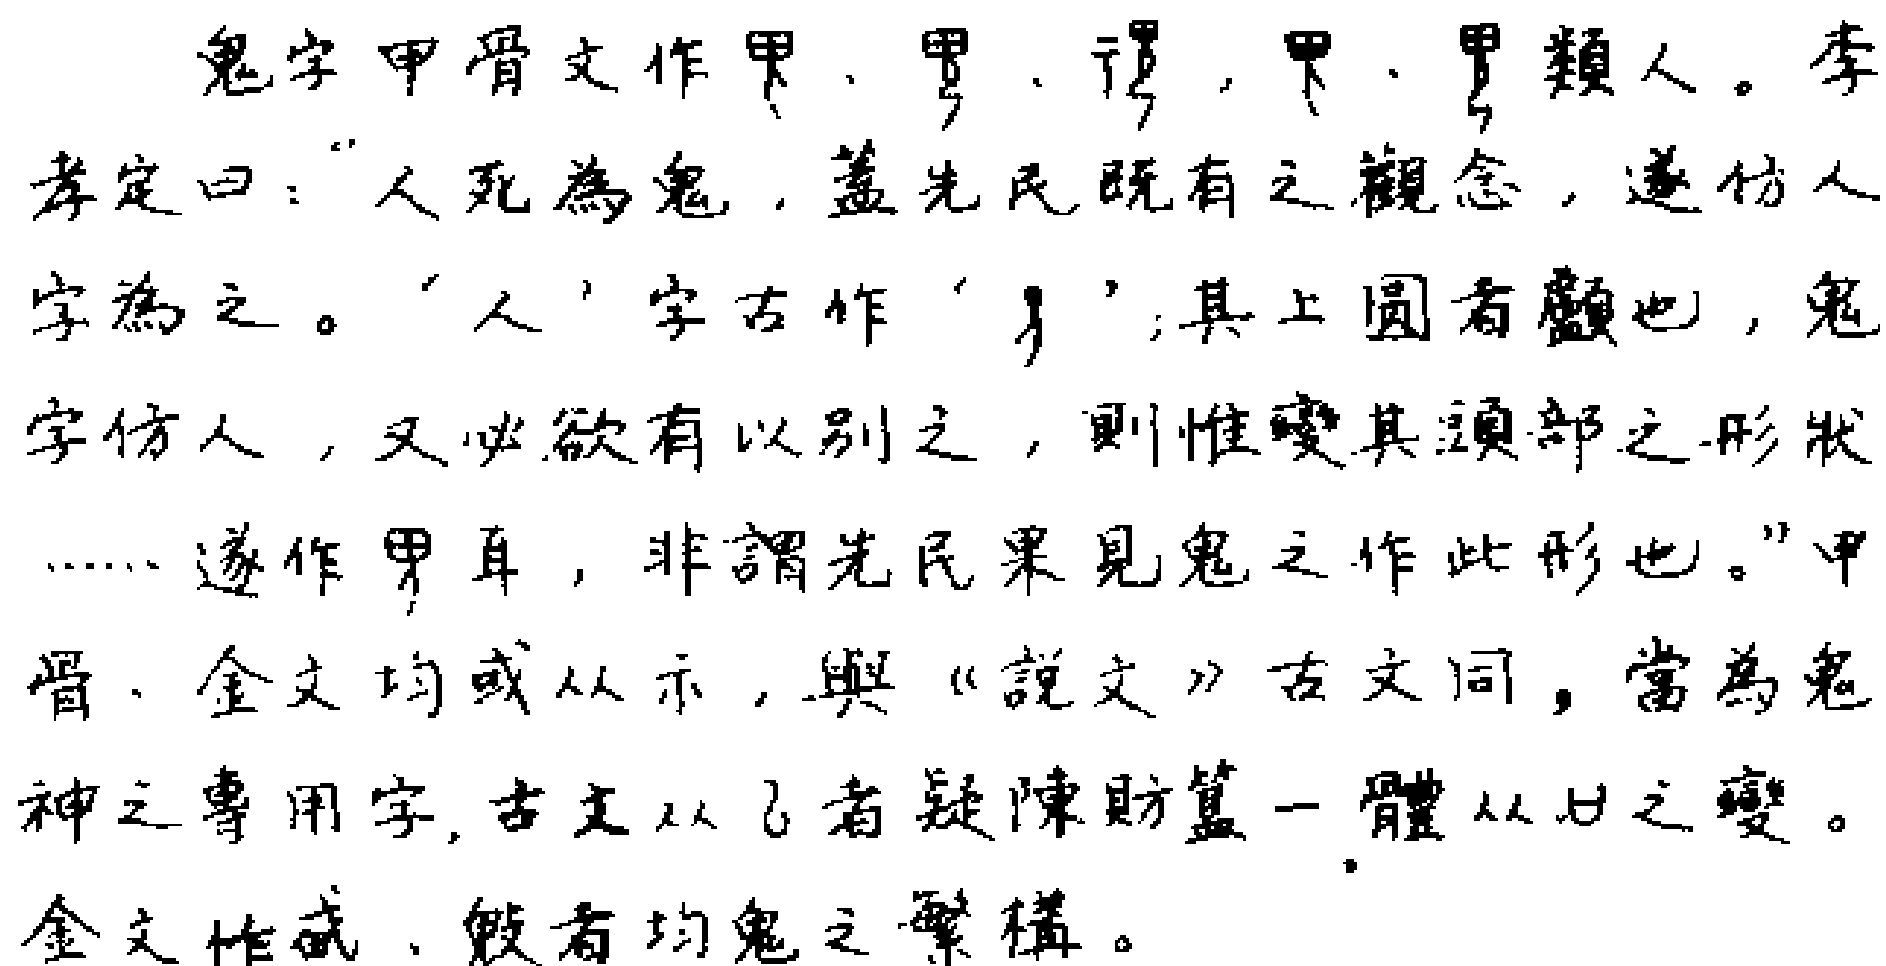 鬼字甲骨文作、、,、類人。李
孝定曰：“人死為鬼，蓋先民既有之觀念，遂仿人
字為之。‘人’字古作‘’；其上圓者顱也，鬼
字仿人，又必欲有以別之，則惟變其頭部之形狀
……遂作耳，非謂先民果見鬼之作此形也。”甲
骨、金文均或从示，與《説文》古文同，當為鬼
神之專用字，古文从者疑陳財簋一體从廿之變。
金文作、者均鬼之繁構。